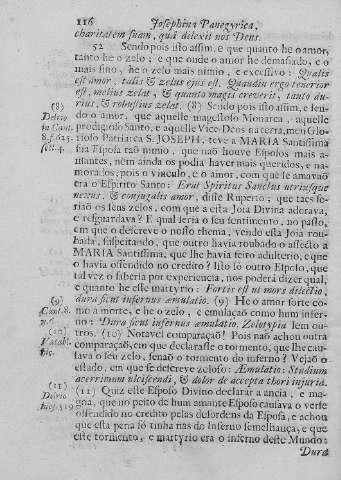 116 Josephina Panegyrica,
charitatem suam, quâ dilexit nos Deus.
52 Sendo pois isto assim, e que quanto he o amor,
tanto he o zelo; e que onde o amor he demasiado, e o
mais fino, he o zelo mais nimio, e excessivo: Qualis
est amor, talis est, & zelus ejus est. Quandiu ergo tenerior
est, melius zelat, & quantò magis creverit, tanto du-
rius, & robustius zelat. (8) Sendo pois isto assim, e sen-
(8)
Delrio
in Cant.
8. f. 625.
do o amor, que aquelle magestoso Monarca, aquelle
prodigioso Santo, e aquelle Vice-Deos na terra, meu Glo-
rioso Patriarca S. JOSEPH, teve a MARIA Santissima
sua Esposa taõ nimio, que naõ houve Esposos mais a-
mantes, nem ainda os podia haver mais queridos, e na-
morados; pois o vinculo, e o amor, com que se amavaõ
era o Espirito Santo: Erat Spiritus Sanctus utriusque
nexus, & conjugalis amor, disse Ruperto; que taes se-
riaõ os seus zelos, com que a esta Joia Divina adorava,
e resguardava? E qual seria o seu sentimento, no passo,
em que o descreve o nosso thema, vendo esta Joia rou-
bada, suspeitando, que outro havia roubado o affecto a
MARIA Santissima, que lhe havia feito adulterio, e que
o havia offendido no credito? Isto só outro Esposo, que
tal vez o saberia por experiencia, nos poderá dizer qual,
e quanto he esse martyrio: Fortis est ut mors dilectio,
dura sicut infernus æmulatio. (9) He o amor forte co-
(9)
Cant. 8.
n. 6.
mo a morte, e he o zelo, e emulaçaõ como hum infer-
no: Dura sicut infernus æmulatio. Zelotypia lem ou-
tros. (10) Notavel comparaçaõ! Pois naõ achou outra
(10)
Vatabl.
hîc.
comparaçaõ, em que declarasse o tormento, que lhe cau-
sava o seu zelo, senaõ o tormento do inferno? Vejaõ o
estado, em que se defereve zeloso: Æmulatio: Studium
acerrimum ulciscendi, & dolor de accepta thori injuria.
(11) Quiz este Esposo Divino declarar a ancia, e ma-
(11)
Delrio
goa, que no peito de hum amante Esposo causava o verse
offendido no credito pelas desordens da Esposa, e achou
que esta pena só tinha nas do Inferno semelhança, e que
este tormento, e martyrio era o inferno deste Mundo:
Dura